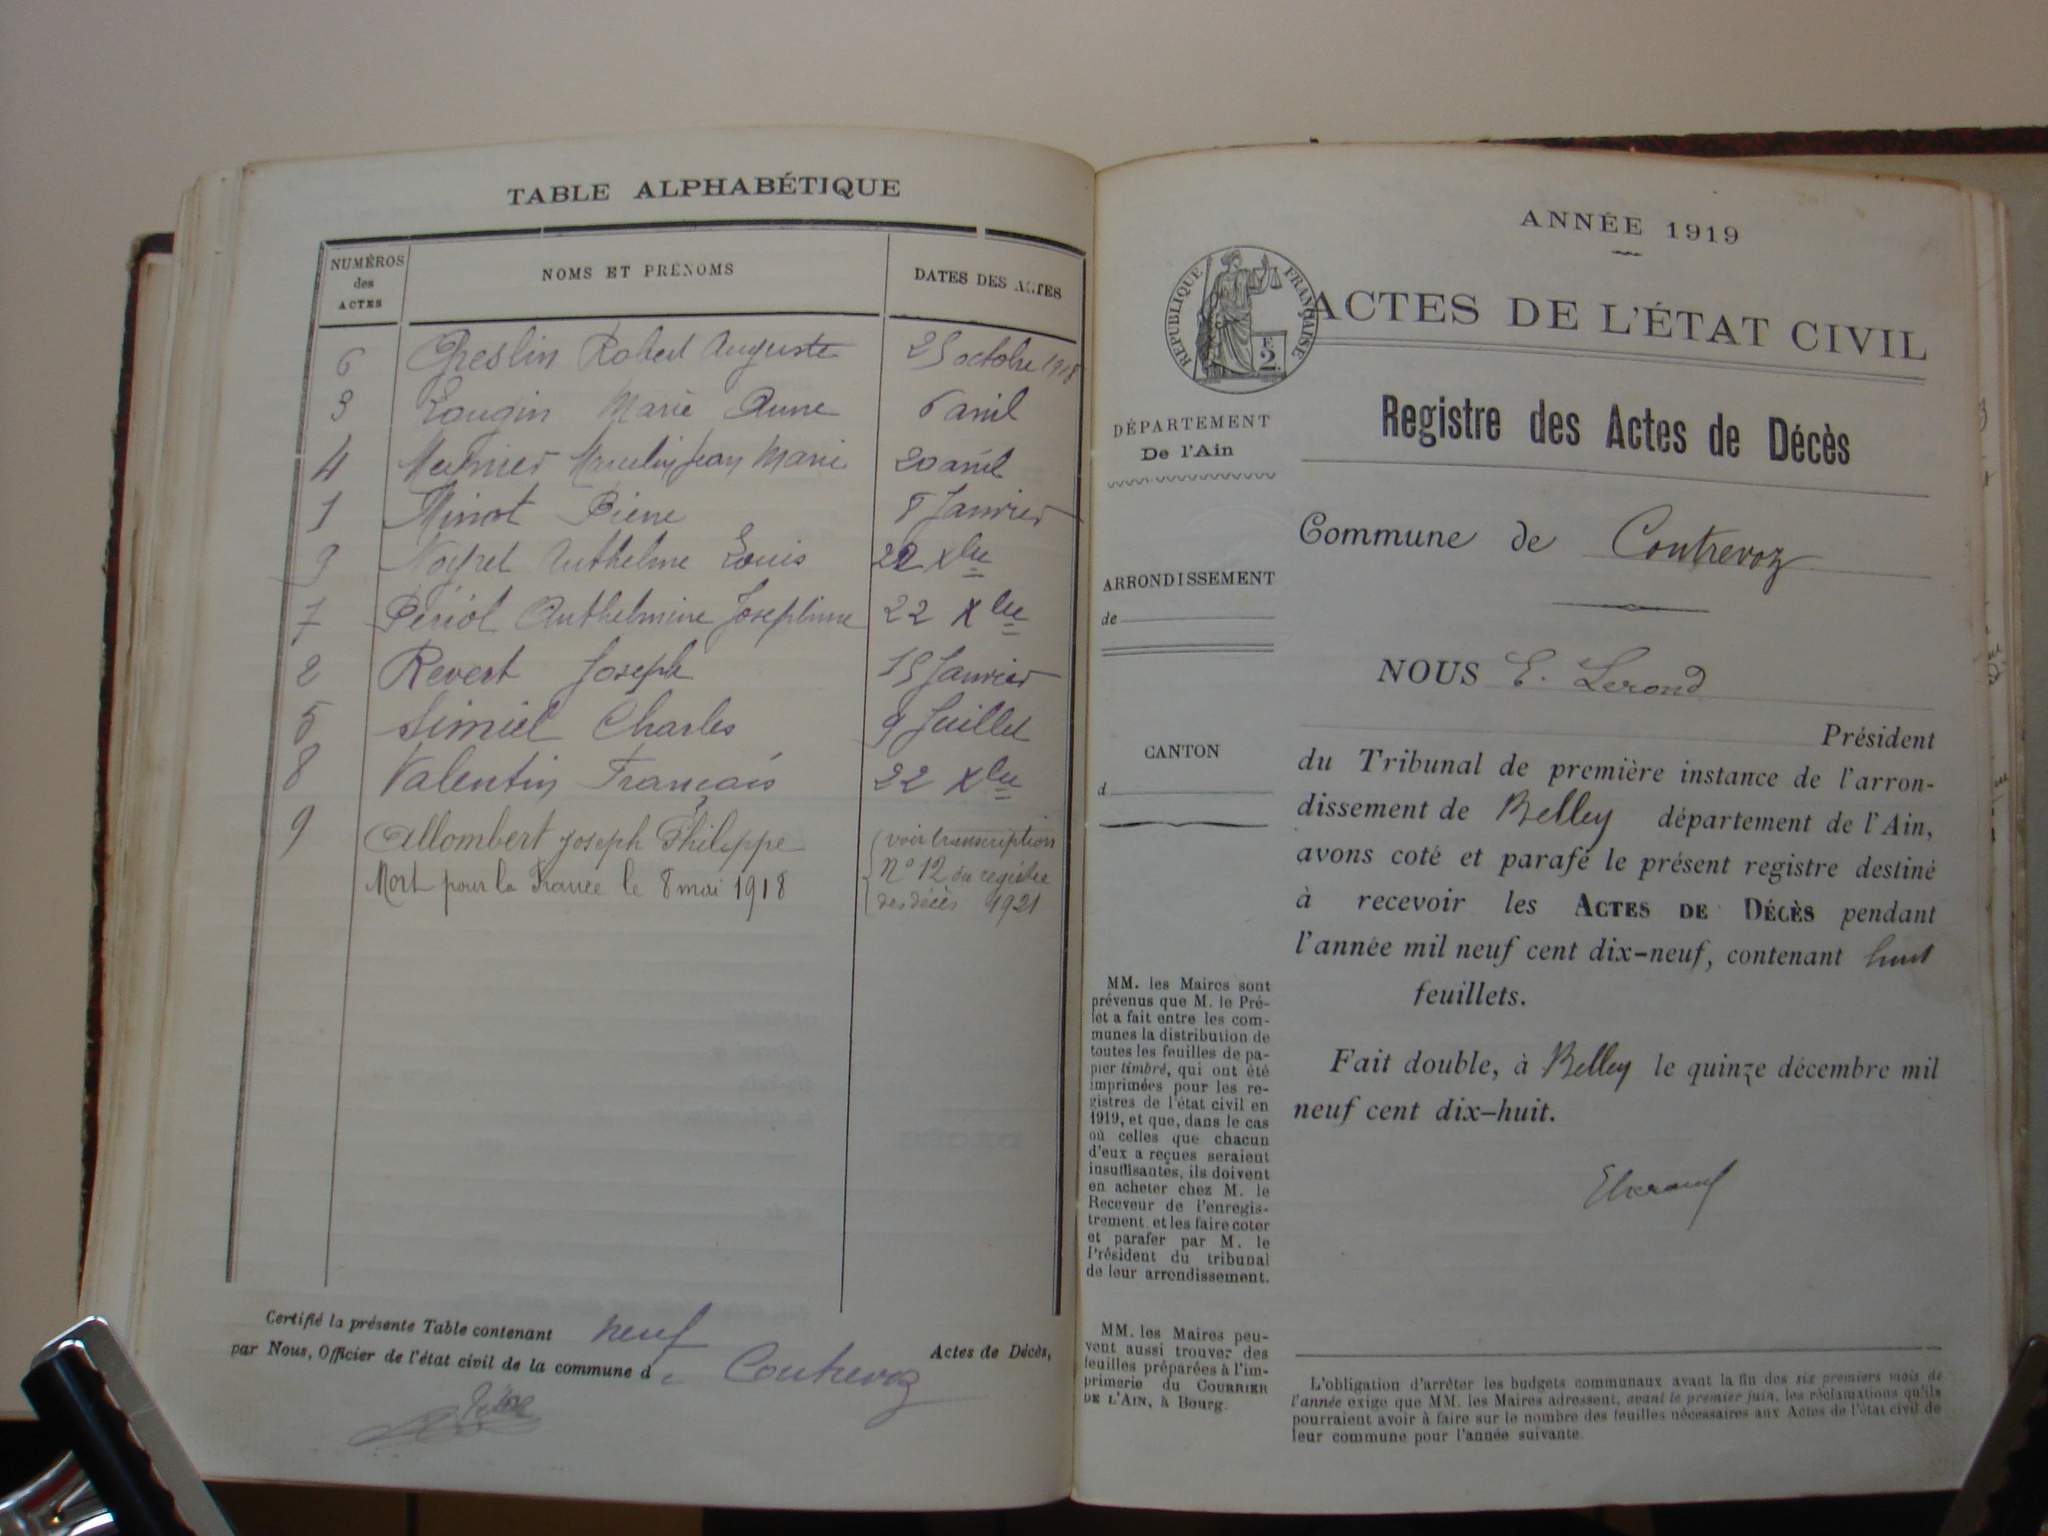 TABLE ALPHABÉTIQUE
NUMÉROS des ACTES
NOMS ET PRÉNOMS
DATES DES ACTES
6 Robert Auguste 25 octobre 1918
3 Marie Anne 6 avril
4 Jean Marie 20 avril
1 Minot Pierre 8 Janvier
9 Anthelme Louis 22 Xbre
7 Périol Anthelmine Joséphine 22 Xbre
2 Revert Joseph 15 Janvier
5 Simiel Charles 9 Juillet
8 Valentin François 22 Xbre
9 Allombert Joseph Philippe (voir transcription
Mort pour la France le 8 mai 1918 n° 12 du registre
des décès 1921
Certifié la présente Table contenant neuf Actes de Décès,
par Nous, Officier de l'état civil de la commune d e Contrevoz
ANNÉE 1919
RÉPUBLIQUE FRANÇAISE
2
ACTES DE L'ÉTAT CIVIL
DÉPARTEMENT
De l'Ain
Registre des Actes de Décès
Commune de Contrevoz
ARRONDISSEMENT
de
NOUS E. Lerond
Président
CANTON
d
du Tribunal de première instance de l'arron-
dissement de Belley département de l'Ain,
avons coté et parafé le présent registre destiné
à recevoir les ACTES DE DÉCÈS pendant
l'année mil neuf cent dix-neuf, contenant huit
feuillets.
Fait double, à Belley le quinze décembre mil
neuf cent dix-huit.
MM. les Maires sont
prévenus que M. le Pré-
fet a fait entre les com-
munes la distribution de
toutes les feuilles de pa-
pier timbré, qui ont été
imprimées pour les re-
gistres de l'état civil en
1919, et que, dans le cas
où celles que chacun
d'eux a reçues seraient
insuffisantes, ils doivent
en acheter chez M. le
Receveur de l'enregis-
trement et les faire coter
et parafer par M. le
Président du tribunal
de leur arrondissement.
MM. les Maires peu-
vent aussi trouver des
feuilles préparées à l'im-
primerie du COURRIER
DE L'AIN, à Bourg.
L'obligation d'arrêter les budgets communaux avant la fin des six premiers mois de
l'année exige que MM. les Maires adressent, avant le premier juin, les réclamations qu'ils
pourraient avoir à faire sur le nombre des feuilles nécessaires aux Actes de l'état civil de
leur commune pour l'année suivante.